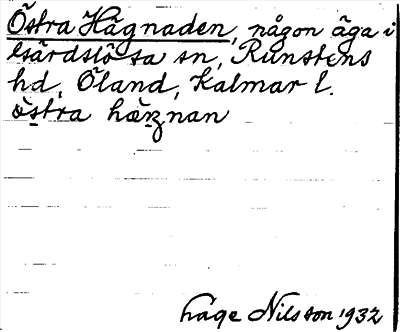 Östra Hägnaden, någon äga i
Gårdslösa sn, Runstens
hd, Öland, Kalmar l.
östra hæŋnan
Åage Nilsson 1932